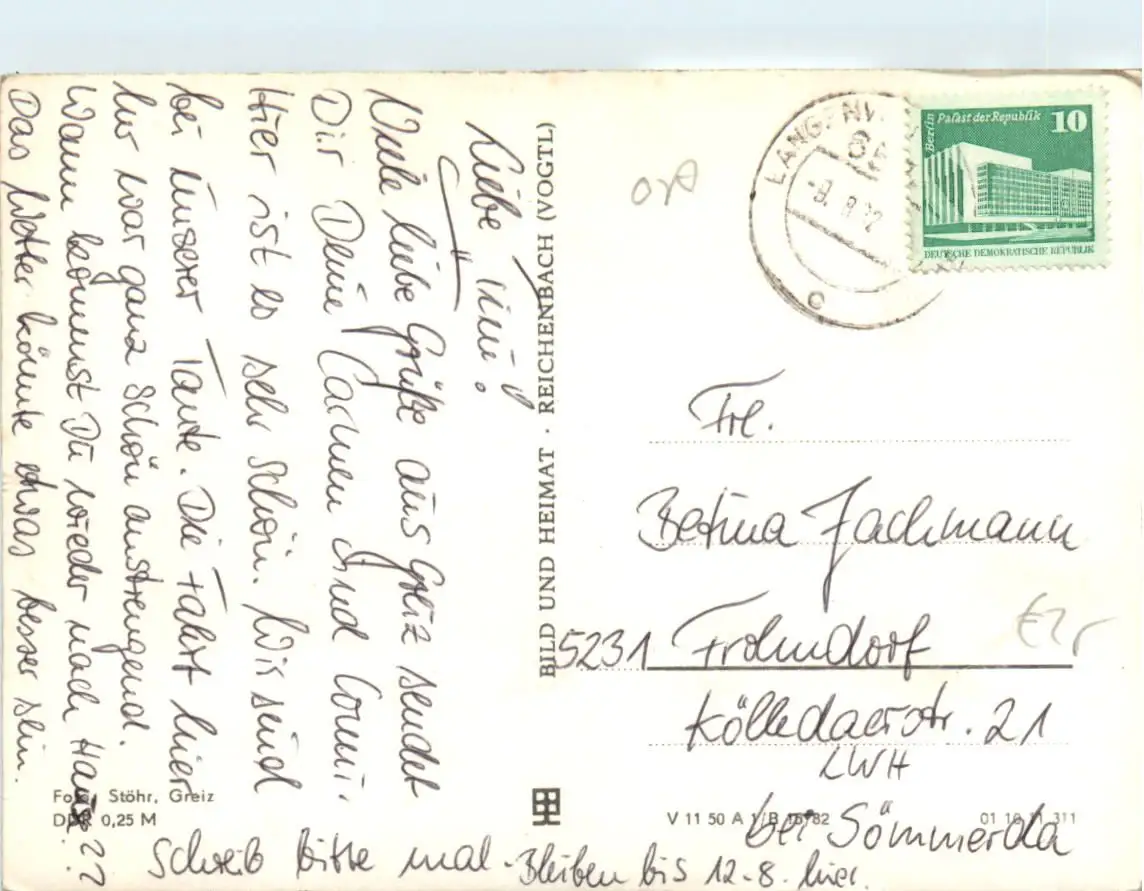 Liebe Tini!
Viele liebe Grüße aus Greiz sendet
Dir Deine Carmen und Conni.
Hier ist es sehr schön. Wir sind
bei unserer Tante. Die Fahrt hier
her war ganz schön anstrengend.
Wann kommst Du wieder nach Hause??
Das Wetter könnte etwas besser sein.
Schreib bitte mal. Bleiben bis 12.8. hier.
Foto: Stöhr, Greiz
DDR 0,25 M
BILD UND HEIMAT · REICHENBACH (VOGTL)
Berlin Palast der Republik 10
DEUTSCHE DEMOKRATISCHE REPUBLIK
-9.8.82
Frl.
Betina Jachmann
5231 Frohndorf
Kölledaerstr. 21
LWH
bei Sömmerda
V 11 50 A 1/B 16/82
01 10 11 311